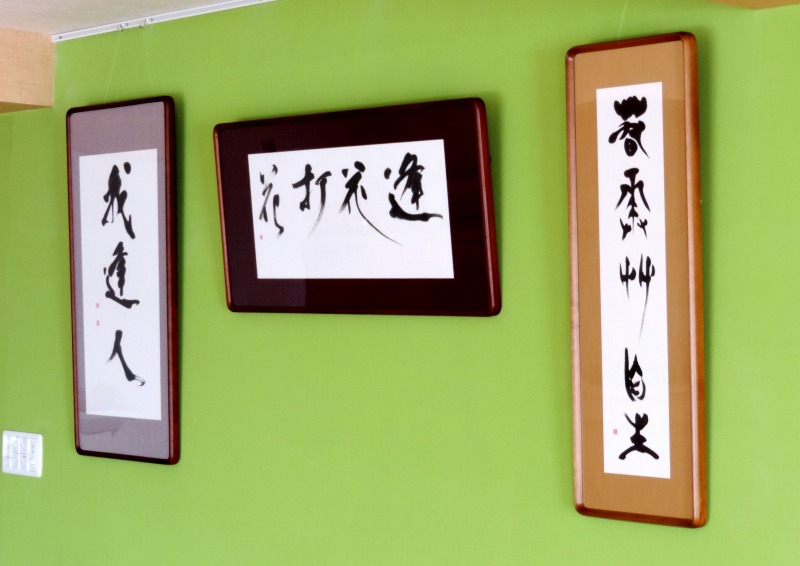 我逢人
逢花打花
春来艸自生